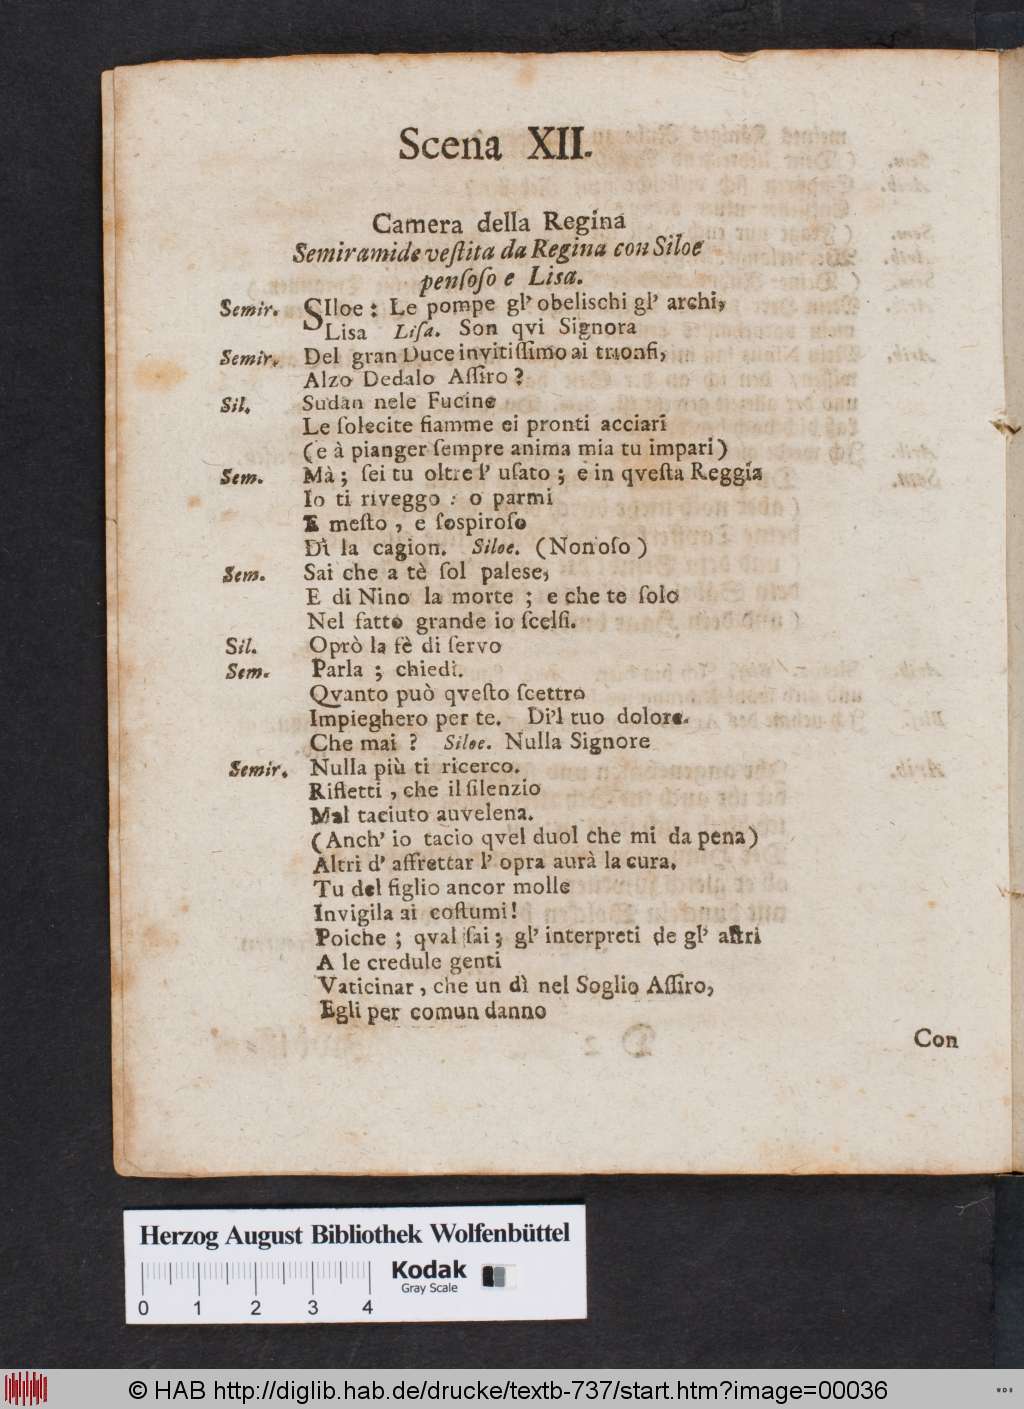 Scena XII.
Camera della Regina
Semiramide veſtita da Regina con Siloe
penſoſo e Lisa.
Semir. SIloe : Le pompe gl' obelischi gl' archi,
Lisa Liſa. Son qvi Signora
Semir. Del gran Duce invitiſſimo ai trionfi,
Alzo Dedalo Aſſiro ?
Sil. Sudan nele Fucine
Le ſolecite fiamme ei pronti acciari
(e à pianger ſempre anima mia tu impari )
Sem. Mà ; ſei tu oltre l' uſato ; e in qveſta Reggia
Io ti riveggo : o parmi
E meſto , e ſospiroſo
Dì la cagion. Siloe. (Non oſo )
Sem. Sai che a tè ſol palese,
E di Nino la morte ; e che te ſolo
Nel fatto grande io ſcelſi.
Sil. Oprò la fè di ſervo
Sem. Parla ; chiedi.
Qvanto può qveſto ſcettro
Impieghero per te. Di'l tuo dolore.
Che mai ? Siloe. Nulla Signore
Semir. Nulla più ti ricerco.
Rifletti , che il ſilenzio
Mal taciuto auvelena.
(Anch' io tacio qvel duol che mi da pena)
Altri d' affrettar l' opra aurà la cura.
Tu del figlio ancor molle
Invigila ai coſtumi!
Poiche ; qval ſai ; gl' interpreti de gl' aſtri
A le credule genti
Vaticinar , che un dì nel Soglio Aſſiro,
Egli per comun danno
Con
Herzog August Bibliothek Wolfenbüttel
Kodak
Gray Scale
0 1 2 3 4
© HAB http://diglib.hab.de/drucke/textb-737/start.htm?image=00036